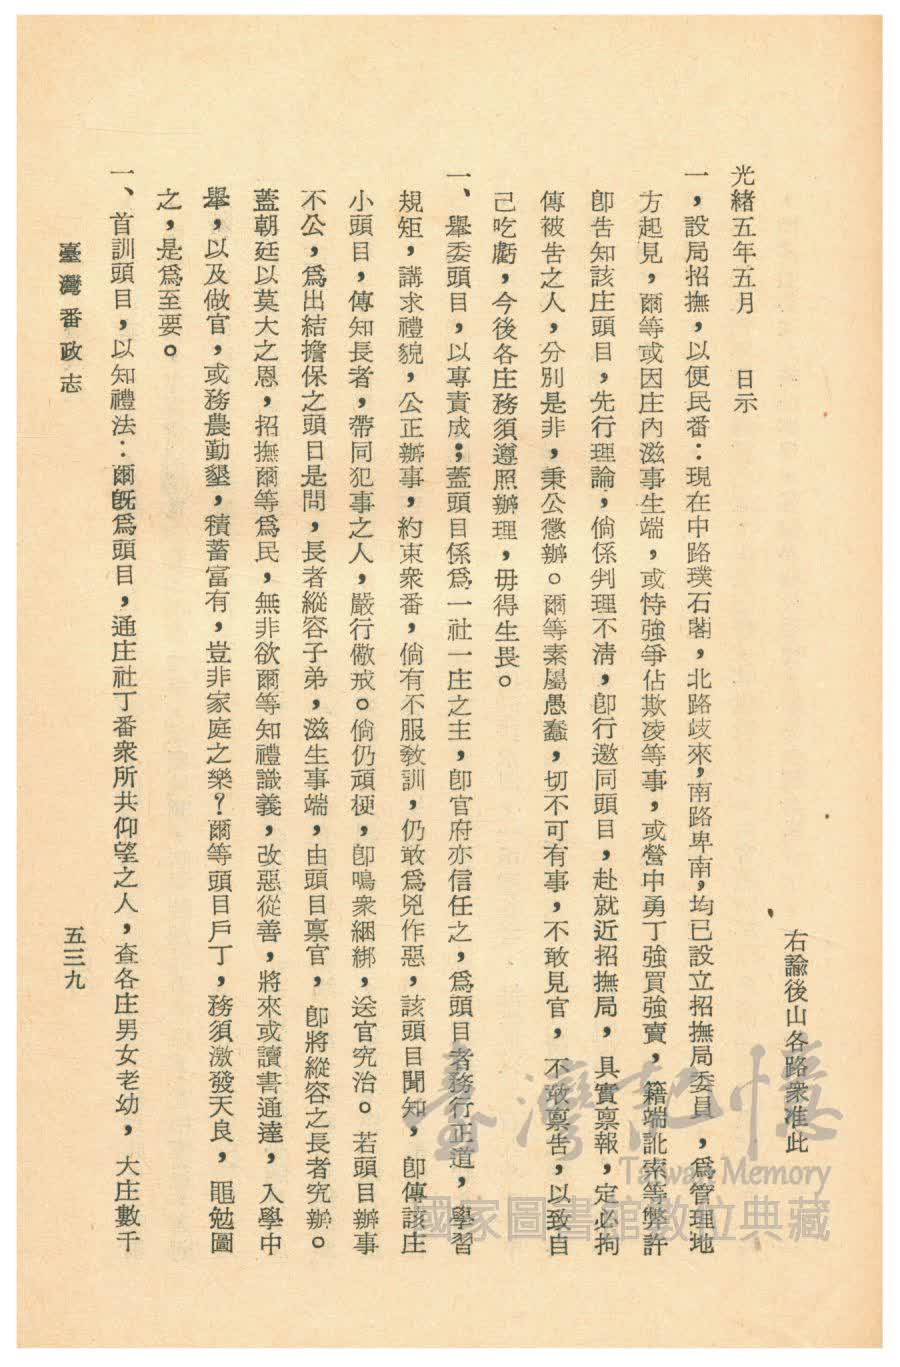 右諭後山各路衆准此
光緒五年五月　　日示
一，設局招撫，以便民番：現在中路璞石閣，北路歧來，南路卑南，均已設立招撫局委員，爲管理地
方起見，爾等或因庄內滋事生端，或恃強爭佔欺凌等事，或營中勇丁強買強賣，籍端訛索等弊許
卽告知該庄頭目，先行理論，倘係判理不淸，卽行邀同頭目，赴就近招撫局，具實禀報，定必拘
傳被告之人，分別是非，秉公懲辦。爾等素屬愚蠢，切不可有事，不敢見官，不敢禀告，以致自
己吃虧，今後各庄務須遵照辦理，毋得生畏。
一、舉委頭目，以專責成；蓋頭目係爲一社一庄之主，卽官府亦信任之，爲頭目者務行正道，學習
規矩，講求禮貌，公正辦事，約束衆番，倘有不服敎訓，仍敢爲兇作惡，該頭目聞知，卽傳該庄
小頭目，傳知長者，帶同犯事之人，嚴行儆戒。倘仍頑梗，卽鳴衆綑綁，送官究治。若頭目辦事
不公，爲出結擔保之頭目是問，長者縱容子弟，滋生事端，由頭目禀官，卽將縱容之長者究辦。
蓋朝廷以莫大之恩，招撫爾等爲民，無非欲爾等知禮識義，改惡從善，將來或讀書通達，入學中
舉，以及做官，或務農勤墾，積蓄富有，豈非家庭之樂？爾等頭目戶丁，務須激發天良，黽勉圖
之，是爲至要。
一、首訓頭目，以知禮法：爾旣爲頭目，通庄社丁番衆所共仰望之人，查各庄男女老幼，大庄數千
臺灣番政志
五三九
臺灣記憶
Taiwan Memory
國家圖書館數位典藏